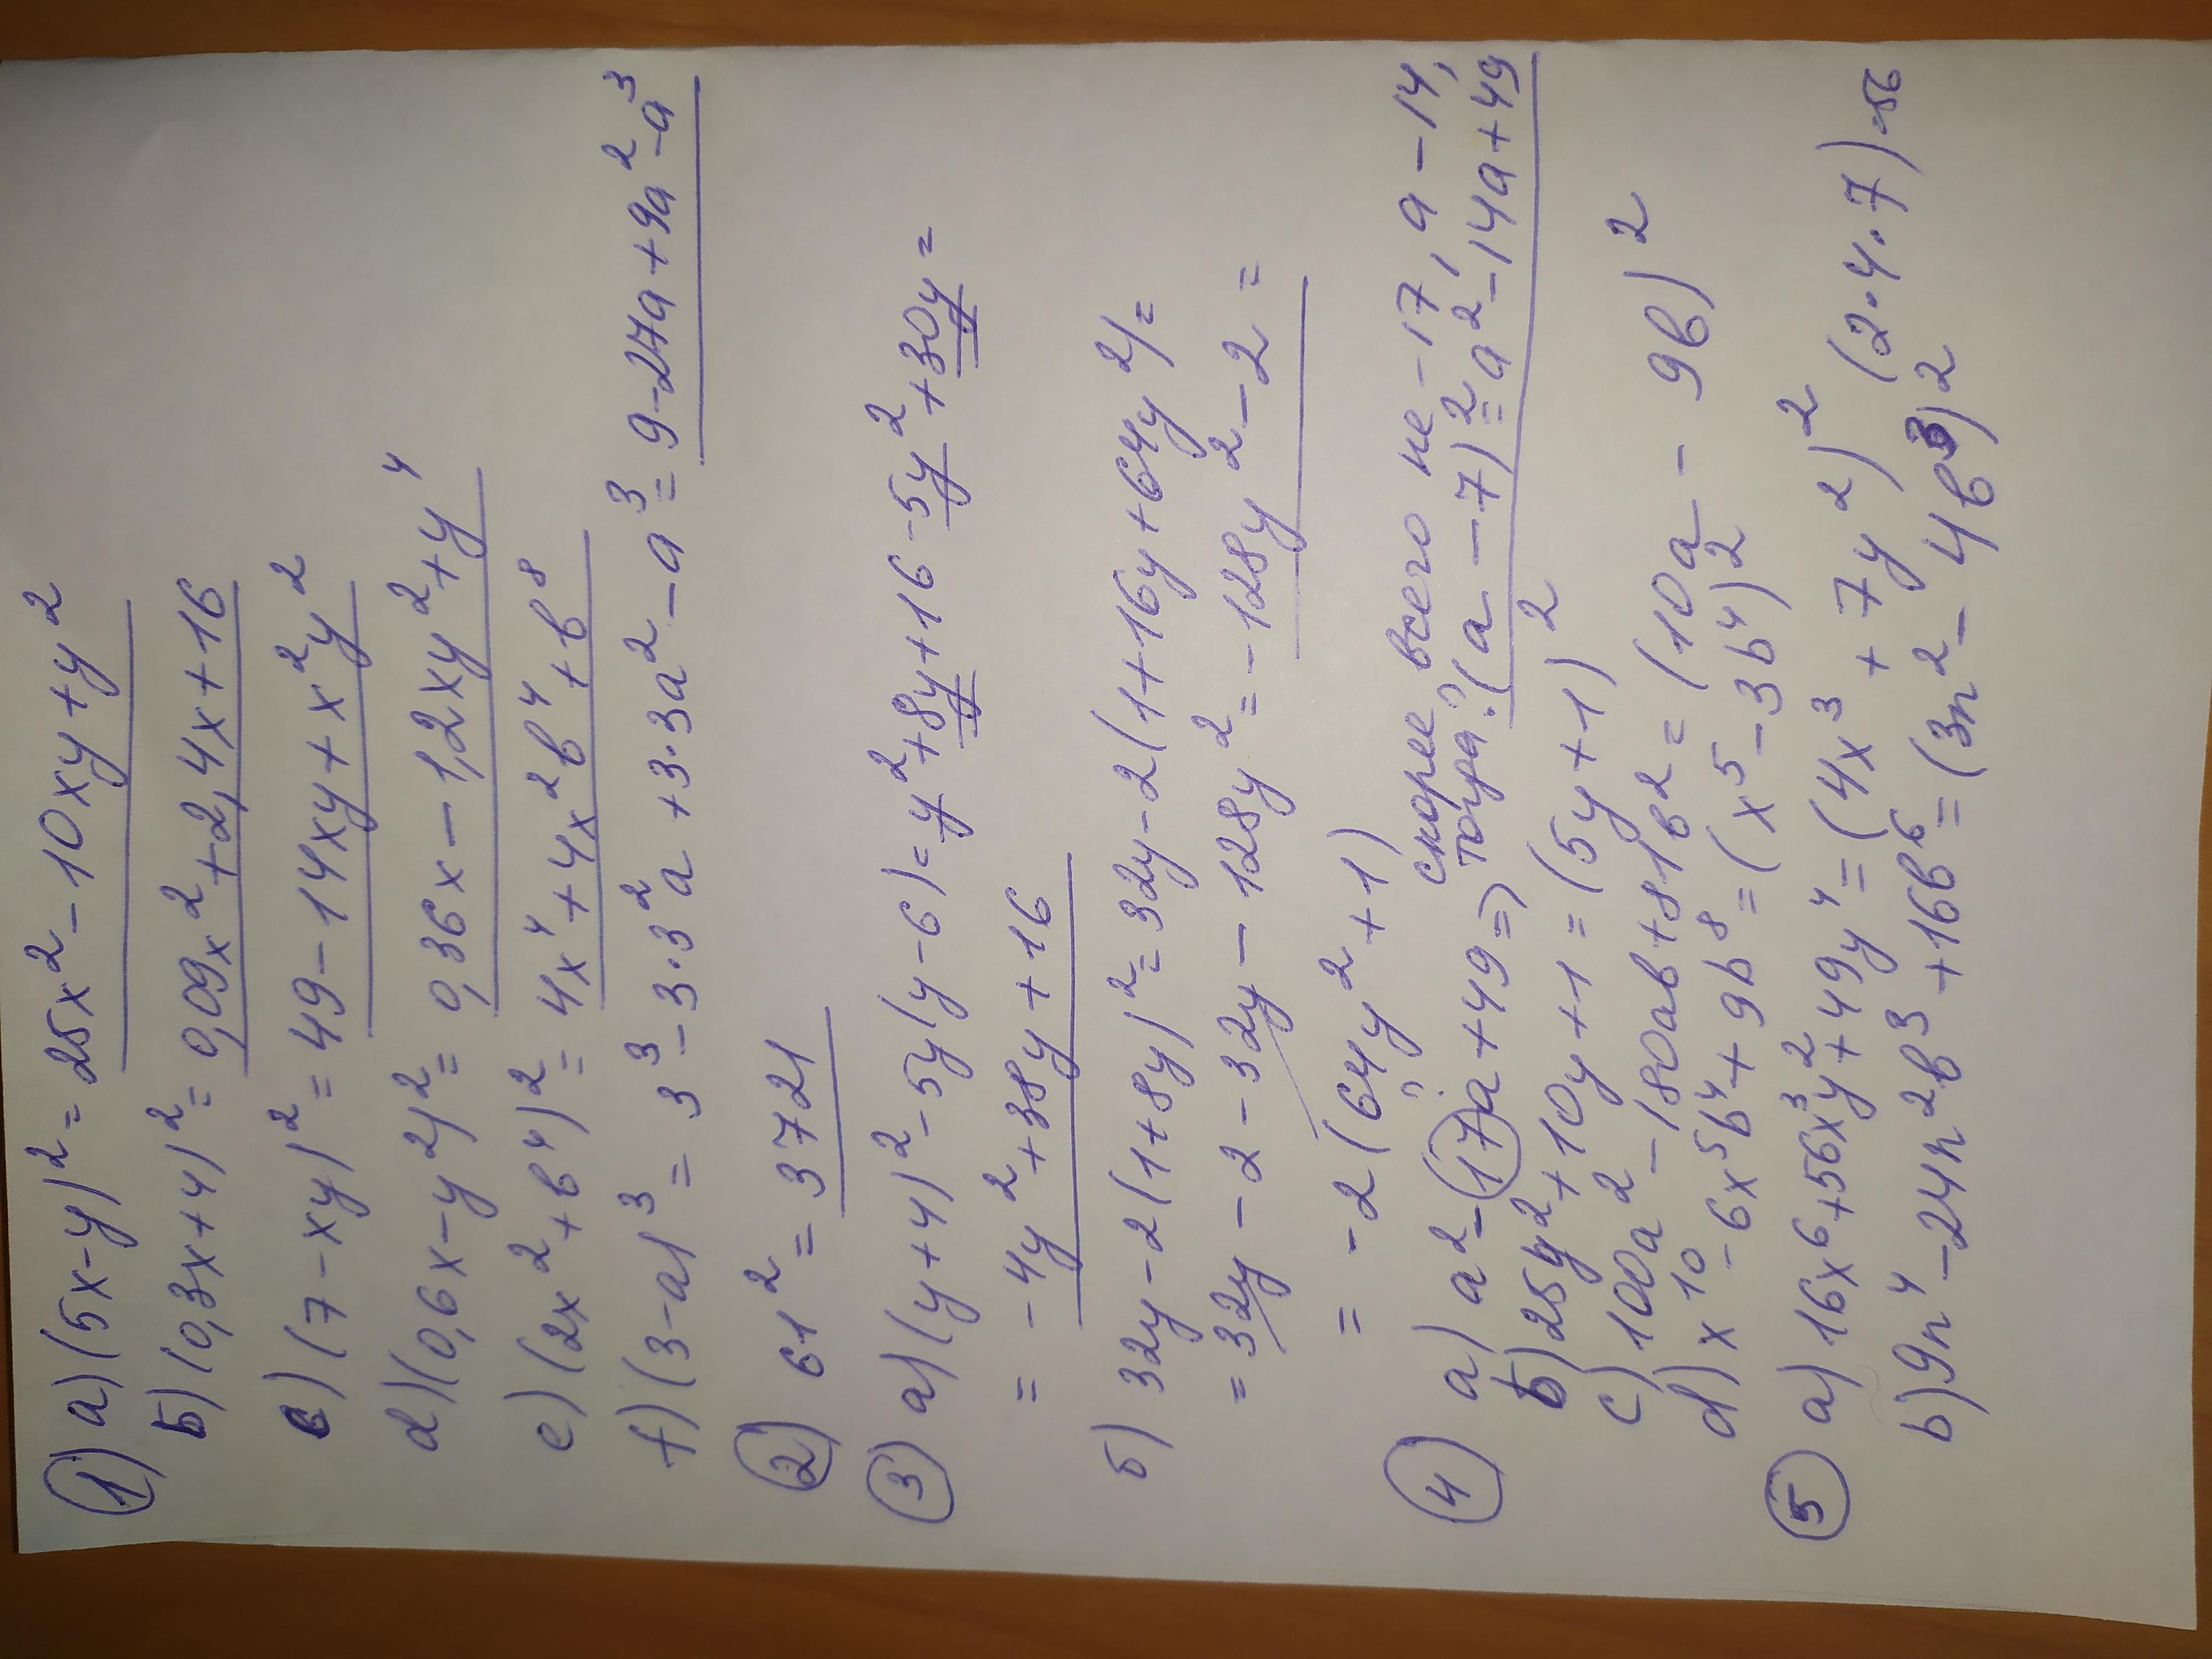 1) a) (5x-y)² = 25x² - 10xy + y²
б) (0,3x+4)² = 0,09x² + 2,4x + 16
c) (7-xy)² = 49 - 14xy + x²y²
d) (0,6x-y²)² = 0,36x - 1,2xy² + y⁴
e) (2x²+b⁴)² = 4x⁴ + 4x²b⁴ + b⁸
f) (3-a)³ = 3³ - 3·3²a + 3·3a² - a³ = 9 - 27a + 9a² - a³
2) 61² = 3721
3) a) (y+4)² - 5y(y-6) = y² + 8y + 16 - 5y² + 30y =
= -4y² + 38y + 16
б) 32y - 2(1+8y)² = 32y - 2(1+16y+64y²) =
= 32y - 2 - 32y - 128y² = -128y² - 2 =
= -2(64y² + 1)
4) a) a² - 17a + 49 => ? скорее всего не -17, а -14,
тогда: (a-7)² = a² - 14a + 49
б) 25y² + 10y + 1 = (5y+1)²
c) 100a² - 180ab + 81b² = (10a - 9b)²
d) x¹⁰ - 6x⁵b⁴ + 9b⁸ = (x⁵ - 3b⁴)²
5) a) 16x⁶ + 56x³y² + 49y⁴ = (4x³ + 7y²)² (2·4·7)=56
b) 9n⁴ - 24n²b³ + 16b⁶ = (3n² - 4b³)²